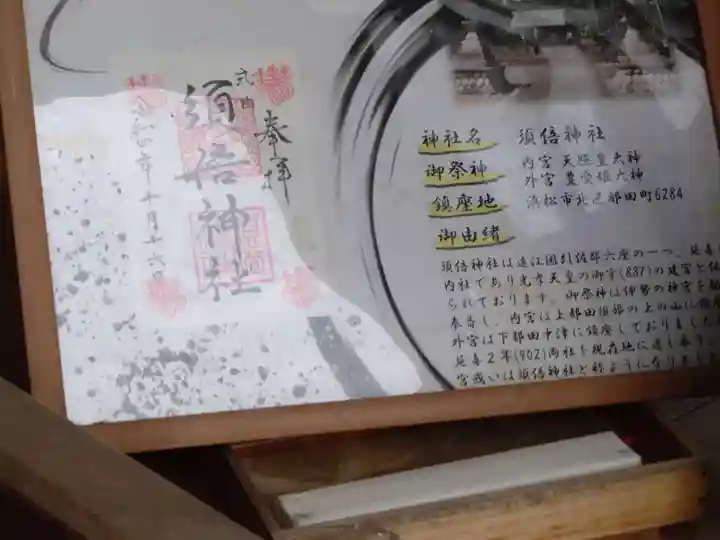 式内
奉拝
須倍神社
令和四年十月十六日
神社名 須倍神社
御祭神 内宮 天照皇大神
外宮 豊受姫大神
鎮座地 浜松市北区都田町6284
御由緒
須倍神社は遠江国引佐郡六座の一つ、延喜
内社であり光孝天皇の御宇(887)の建宮と伝
られております。御祭神は伊勢の神宮を
奉斎し、内宮は上都田須部の上の山に鎮
外宮は下都田中津に鎮座しておりました
延喜2年(902)両社を現在地に遷し奉り、
宮或いは須倍神社と称ようになりました